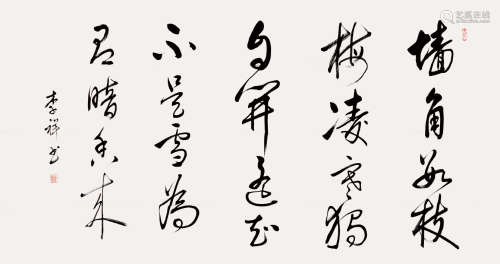 墙角数枝
梅凌寒独
自开遥知
不是雪为
有暗香来
李祥书